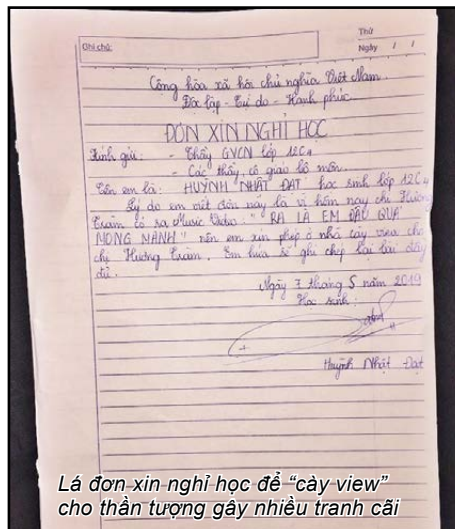 Thứ
Ghi chú:
Ngày / /
Cộng hòa xã hội chủ nghĩa Việt Nam
Độc lập - Tự do - Hạnh phúc
ĐƠN XIN NGHỈ HỌC
Kính gửi: - Thầy GVCN lớp 12C4
- Các thầy, cô giáo bộ môn.
Tên em là: HUỲNH NHẬT ĐẠT, học sinh lớp 12C4
Lý do em viết đơn này là vì hôm nay chị Hương
Tràm có ra Music Video: "RA LÀ EM ĐẬU QUA
MONG MANH" nên em xin phép ở nhà cày view cho
chị Hương Tràm. Em hứa sẽ ghi chép lại bài đầy
đủ.
Ngày 7 tháng 5 năm 2019
Học sinh:
Huỳnh Nhật Đạt
Lá đơn xin nghỉ học để "cày view"
cho thần tượng gây nhiều tranh cãi